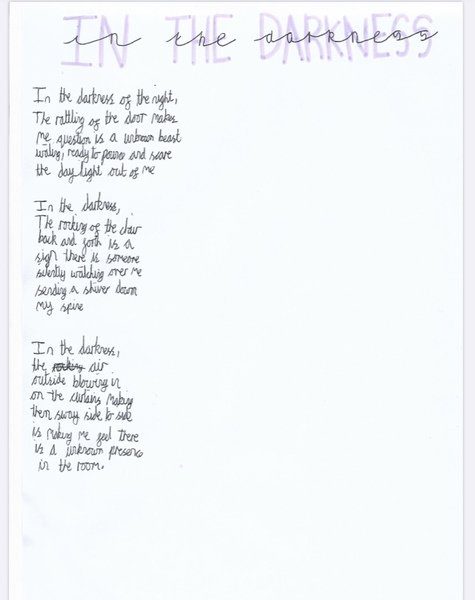 IN THE DARKNESS
in the darkness
In the darkness of the night,
The rattling of the door makes
me question is a unknown beast
waiting, ready to pounce and scare
the day light out of me
In the darkness,
The rocking of the chair
back and forth is a
sign there is someone
silently watching over me
sending a shiver down
my spine
In the darkness,
the rocking air
outside blowing in
on the curtains making
them sway side to side
is making me feel there
is a unknown presence
in the room.